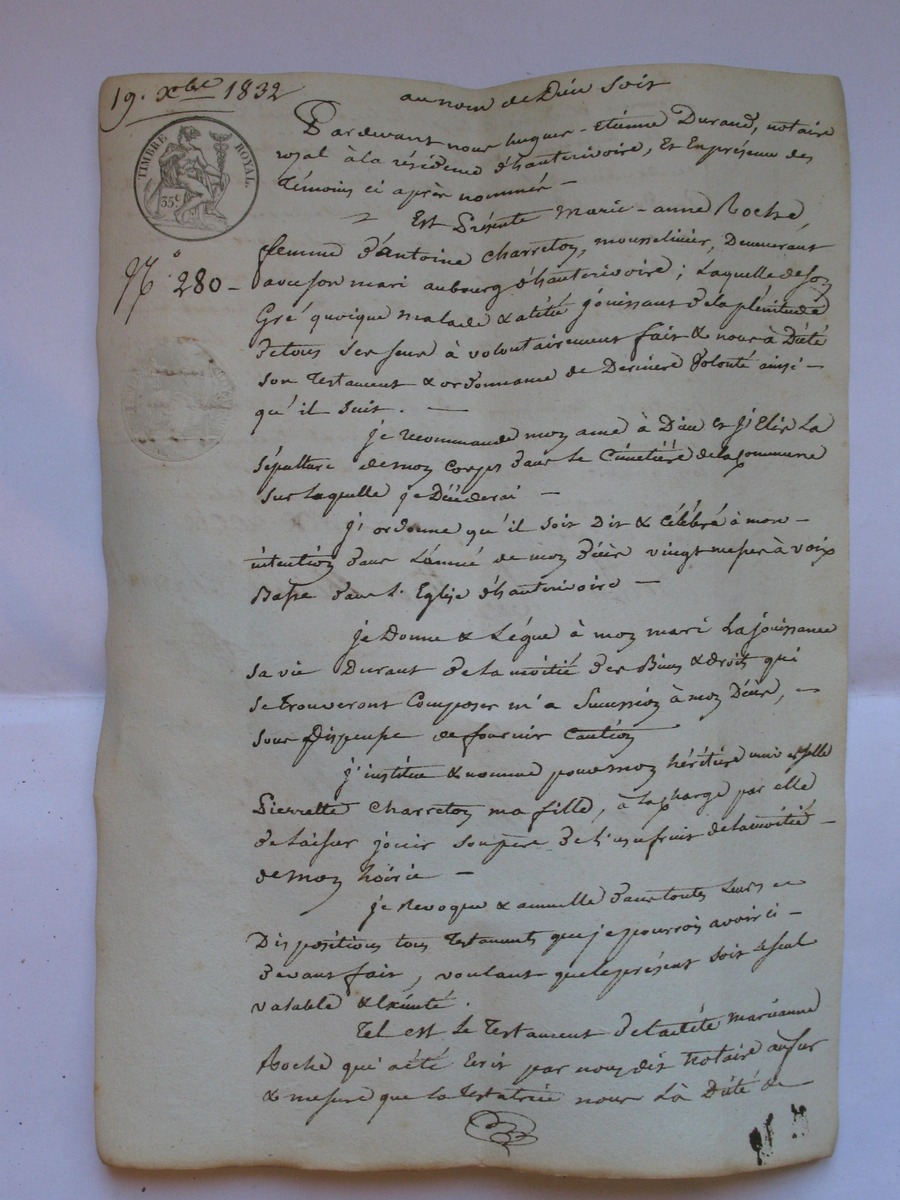 19. Xbre 1832
au nom de Dieu soit
TIMBRE ROYAL.
35c
No 280 -
Pardevant nous hugues-Etienne Durand, notaire
royal à la résidence d'hauterivoire, et En présence des
témoins ci après nommés -
Est Présente Marie-anne Roche,
femme d'antoine Charretoy, mousselinier, Demeurant
avec son mari au bourg d'hauterivoire; Laquelle de son
Gré quoique malade & alitée jouissant de la plénitude
de tous ses sens à volontairement fait & nous à Dicté
son testament & ordonnance de Derniere Volonté ainsi -
qu'il suit. -
je recommande mon ame à Dieu et j'Elis La
sépulture de mon corps dans le Cimetière de la Commune
sur laquelle je Décéderai -
j'ordonne qu'il soit Dit & célébré à mon -
intention dans l'année de mon décès vingt messes à voix
Basse dans l'Eglise d'hauterivoire -
je Donne & Légue à mon mari La jouissance
sa vie Durant de la moitié des Biens & droits qui
se trouveront Composer m'a Succession à mon Décès, -
sous dispense de fournir Caution
j'institue & nomme pour mon héritière universelle
Pierrette Charretoy ma fille, à la charge par elle
de laisser jouir son père de l'usufruit de la moitié -
de mon hoirie -
je Revoque & annulle dans toutes leurs
Dispositions tous testaments que je pourrois avoir ci -
devant fait, voulant que le présent soit le seul
valable & Exécuté.
Tel est le testament de ladite marieanne
Roche qui a été Ecrit par nous dit Notaire au fur
& mesure que la testatrice nous L'à Dicté de